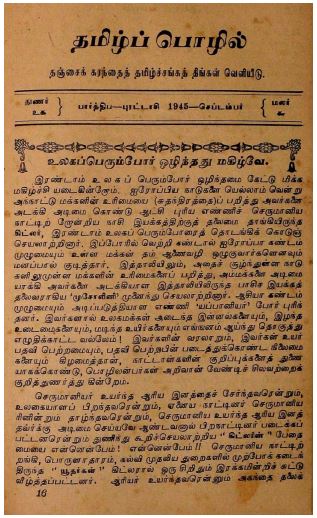 தமிழ்ப் பொழில்
தஞ்சைக் கரந்தைத் தமிழ்ச்சங்கத் திங்கள் வெளியீடு.
துணர்
உக
பார்த்திப—புரட்டாசி 1945—செப்டம்பர்
மலர்
௬
உலகப்பெரும்போர் ஒழிந்தது மகிழ்வே.
இரண்டாம் உலகப் பெரும்போர் ஒழிந்தமை கேட்டு மிக்க
மகிழ்ச்சி யடைகின்றோம். ஐரோப்பிய நாடுகளை யெல்லாம் வென்று
அந்நாட்டு மக்களின் உரிமையை (சுதந்திரத்தை)ப் பறித்து அவர்களை
அடக்கி அடிமை கொண்டு ஆட்சி புரிய எண்ணிச் செருமானிய
நாட்டிற் றோன்றிய நாசி இயக்கத்திற்குத் தலைமை தாங்கியிருந்த
கிட்லர், இரண்டாம் உலகப் பெரும்போரைத் தொடங்கிக் கொடுஞ்
செயலாற்றினார். இப்போரில் வெற்றி கண்டால் ஐரோப்பா கண்டம்
முழுமையும் உள்ள மக்கள் தம் ஆணைவழி ஒழுகுவார்களெனவும்
மனப்பால் குடித்தார். இத்தாலியினும், அதைச் சூழ்ந்துள்ள நாடு
களிலுமுள்ள மக்களின் உரிமைகளைப் பறித்து, அம்மக்களை அடிமை
யாக்கி அவர்களை அடக்கியாள இத்தாலியிலிருந்த பாசிச இயக்கத்
தலைவராகிய 'முசோலினி' முனைந்து செயலாற்றினார். ஆசியா கண்டம்
முழுமையும் அடிப்படுத்தியாள எண்ணி 'யப்பானியர்' போர் புரிந்
தனர். இவர்களால் உலகமக்கள் அடைந்த இன்னல்களையும், இழந்த
உடைமைகளையும், மடிந்த உயிர்களையும் எங்ஙனம் ஆய்ந்து தொகுத்து
எடுத்துக்காட்ட வல்லேம்! இவர்களின் வரலாறும், இவர்கள் உயர்
பதவி பெற்றமையும், பதவி பெற்றபின் படைத்துக்கொண்ட நிலைமை
களையும் கிழமைத்தாள், நாட்டாள்களின் குறிப்புக்களைத் துணை
யாகக்கொண்டு, பொழிலன்பர்கள் அறிவான் வேண்டிச் சிலவற்றைக்
குறித்துணர்த்து கின்றேம்.
செருமானியர் உயர்ந்த ஆரிய இனத்தைச் சேர்ந்தவரென்றும்,
உலகையாளப் பிறந்தவரென்றும், ஏனைய நாட்டினர் செருமானிய
ரினின்றும் தாழ்ந்தவரென்றும், செருமானிய உயர்ந்த ஆரிய இனத்
தவர்க்கு அடிமை செய்யவே ஆண்டவனால் பிறநாட்டினர் படைக்கப்
பட்டனரென்றும் துணிந்து கூறிச்செயலாற்றிய "கிட்லரின்" பேதை
மையை என்னென்பேம்! என்னென்பேம்!! செருமானிய நாட்டிற்
கண், பொருளாதாரம், கல்வி முதலிய துறைகளில் முற்போக்கடைந்
திருந்த "யூதர்கள்" கிட்லரால் ஒரு சிறிதும் இரக்கமின்றிச் சுட்டு
வீழ்த்தப்பட்டனர். ஆரியர் உயர்ந்தவரென்னும் அகந்தை தலைக்
16